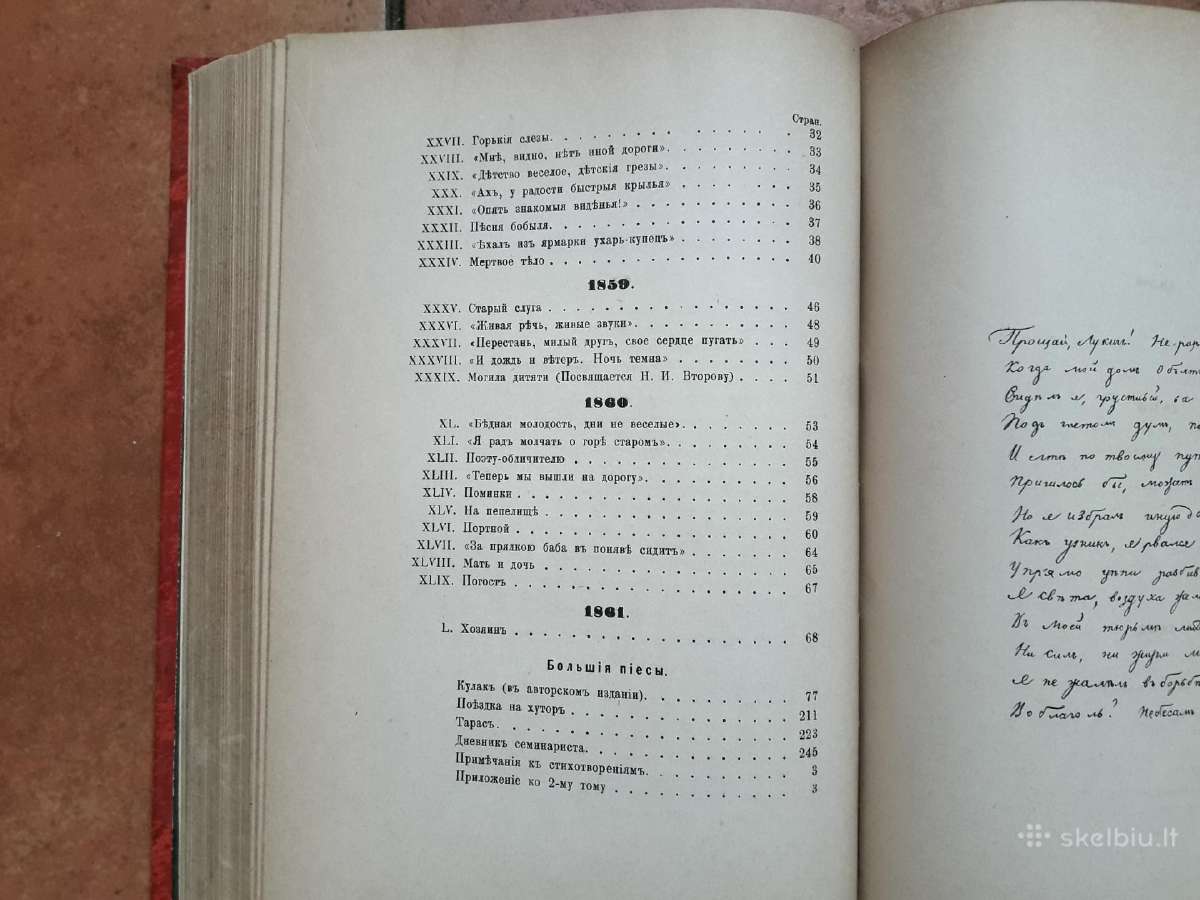 Стран.
XXVII. Горькія слезы. . . . . . . . . . . . . . 32
XXVIII. «Мнѣ, видно, нѣтъ иной дороги». . . . . . . . . 33
XXIX. «Дѣтство веселое, дѣтскія грезы». . . . . . . . . 34
XXX. «Ахъ, у радости быстрыя крылья» . . . . . . . . 35
XXXI. «Опять знакомыя видѣнья!» . . . . . . . . . . . 36
XXXII. Пѣсня бобыля. . . . . . . . . . . . . . . 37
XXXIII. «Ѣхалъ изъ ярмарки ухарь-купецъ» . . . . . . . . 38
XXXIV. Мертвое тѣло . . . . . . . . . . . . . . . 40
1859.
XXXV. Старый слуга . . . . . . . . . . . . . . . 46
XXXVI. «Живая рѣчь, живые звуки». . . . . . . . . . . 48
XXXVII. «Перестань, милый другъ, свое сердце пугать» . . . . 49
XXXVIII. «И дождь и вѣтеръ. Ночь темна» . . . . . . . . . 50
XXXIX. Могила дитяти (Посвящается Н. И. Второву) . . . . 51
1860.
XL. «Бѣдная молодость, дни не веселые». . . . . . . . 53
XLI. «Я радъ молчать о горѣ старомъ». . . . . . . . . 54
XLII. Поэту-обличителю . . . . . . . . . . . . . . 55
XLIII. «Теперь мы вышли на дорогу». . . . . . . . . . 56
XLIV. Поминки . . . . . . . . . . . . . . . . . 58
XLV. На пепелищѣ . . . . . . . . . . . . . . . 59
XLVI. Портной . . . . . . . . . . . . . . . . . 60
XLVII. «За прялкою баба въ понявѣ сидитъ» . . . . . . . 64
XLVIII. Мать и дочь . . . . . . . . . . . . . . . . 65
XLIX. Погостъ . . . . . . . . . . . . . . . . . 67
1861.
L. Хозяинъ . . . . . . . . . . . . . . . . . 68
Большія піесы.
Кулакъ (въ авторскомъ изданіи). . . . . . . . . . 77
Поѣздка на хуторъ . . . . . . . . . . . . . . 211
Тарасъ. . . . . . . . . . . . . . . . . . . 223
Дневникъ семинариста. . . . . . . . . . . . . 245
Примѣчанія къ стихотвореніямъ. . . . . . . . . . 3
Приложеніе ко 2-му тому . . . . . . . . . . . . 3
Прощай, Лукичъ! Не
Когда мой домъ
Сидѣлъ я, грустный, за
Подъ
И
по твоему
Пришлось бы, можетъ
Но я избралъ иную
Какъ узникъ, я рвался
Упрямо цѣпи
Я свѣта, воздуха
Въ моей тюрьмѣ
Ни силъ, ни жизни
Я не жалѣлъ въ
Во благо ль? Небесамъ
skelbiu.lt